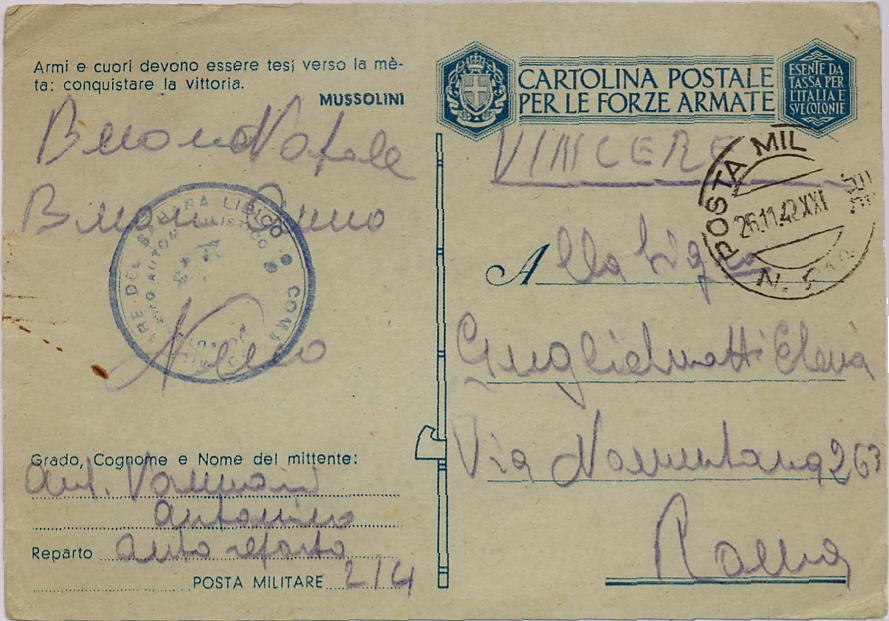 Armi e cuori devono essere tesi verso la mè-
ta: conquistare la vittoria.
MUSSOLINI
Buon Natale
Buon Anno
Nino
Grado, Cognome e Nome del mittente:
Aut. Vannani
Antonino
Reparto Auto reparto
POSTA MILITARE 214
CARTOLINA POSTALE
PER LE FORZE ARMATE
ESENTE DA
TASSA PER
L'ITALIA E
SUE COLONIE
VINCERE
POSTA MIL
26.11.42 XXI
N.
A lla Sig.
Guglielmotti Elena
Via Nomentana 263
Roma